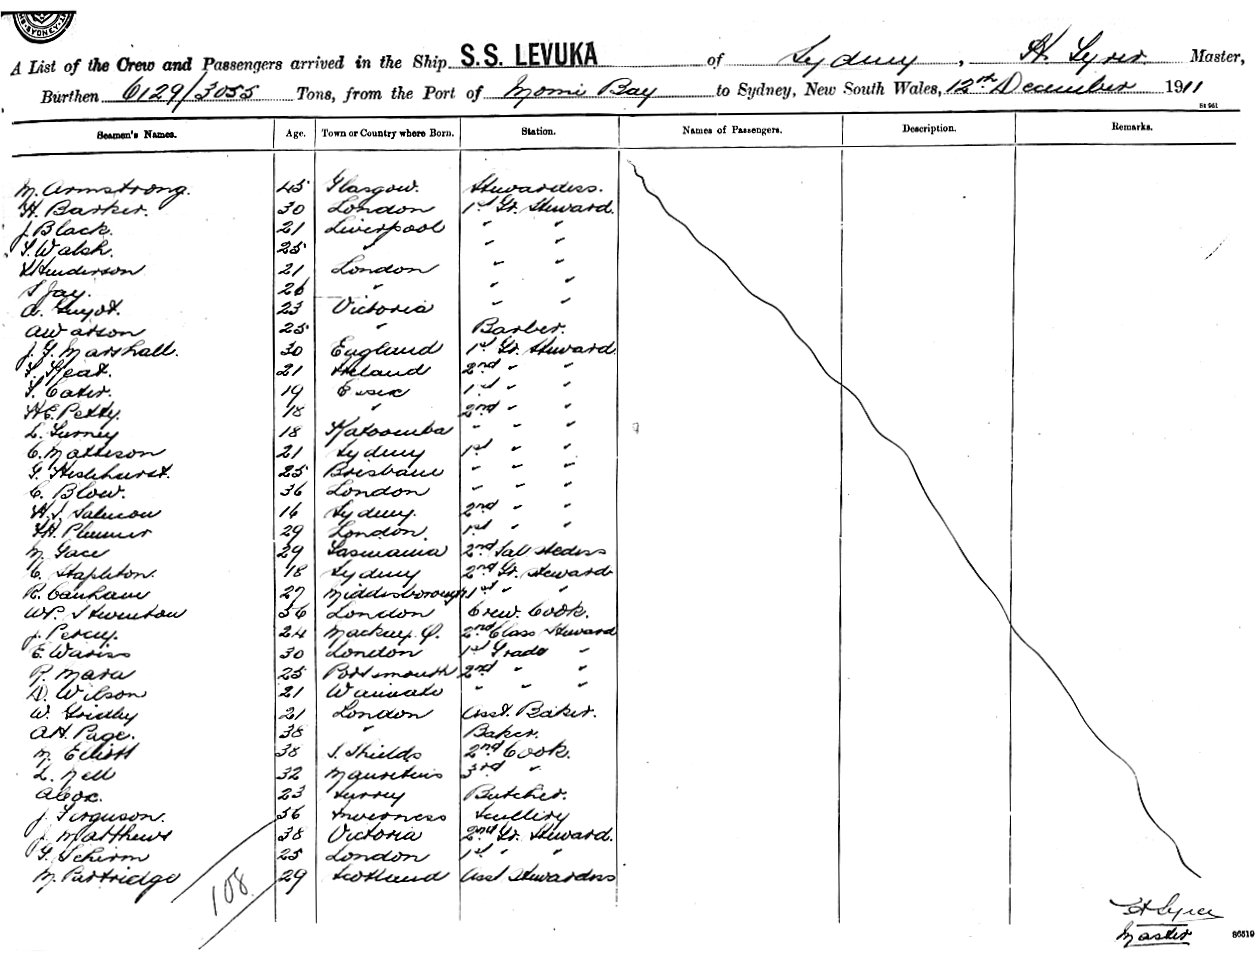 SYDNEY
A List of the Crew and Passengers arrived in the Ship S.S. LEVUKA of Sydney, H. Syrer Master,
Burthen 6129/3055 Tons, from the Port of Momi Bay to Sydney, New South Wales, 12th December 1911
St 961
Seamen's Names. Age. Town or Country where Born. Station. Names of Passengers. Description. Remarks.
M. Armstrong. 45 Glasgow. Stewardess.
H. Barker. 30 London 1st Gr. Steward.
J. Black. 21 Liverpool " "
T. Walsh. 25 " " "
Henderson 21 London " "
S. Jay. 26 " " "
A. Guyot. 23 Victoria " "
A Watson 25 " Barber.
J. G. Marshall. 30 England 1st Gr. Steward.
Keat. 21 Ireland 2nd " "
T. Cater. 19 Essex 1st " "
H.E. Petty. 18 " 2nd " "
L. Gurney 18 Katoomba " " "
C. Matteson 21 Sydney 1st " "
G. Heslehurst. 25 Brisbane " " "
C. Blow. 36 London " " "
H. J. Salmon 16 Sydney. 2nd " "
Plummer 29 London. 1st " "
M. Gace 29 Tasmania 2nd Sal Stedess
C. Stapleton. 18 Sydney 2nd Gr. Steward
R. Canham 27 Middlesborough 1st " "
WP. Swinton 56 London Crew. Cook.
J. Percy. 24 Mackay Q. 2nd Class Steward
E. Wariss 30 London 1st Grade "
P. Mara 25 Portsmouth 2nd " "
D. Wilson 21 Waimate " " "
W. Gridley 21 London Asst. Baker.
AH. Page. 38 " Baker.
M. Elliott 38 S. Shields 2nd Cook.
L. Nell 32 Mauritius 3rd "
A Cox. 23 Surrey Butcher.
J. Ferguson. 36 Inverness Scullery
J. Matthews 38 Victoria 2nd Gr. Steward.
G. Schirm 25 London 1st " "
M. Partridge 29 Scotland Asst Stewardess
108
H Syrer
Master
86519